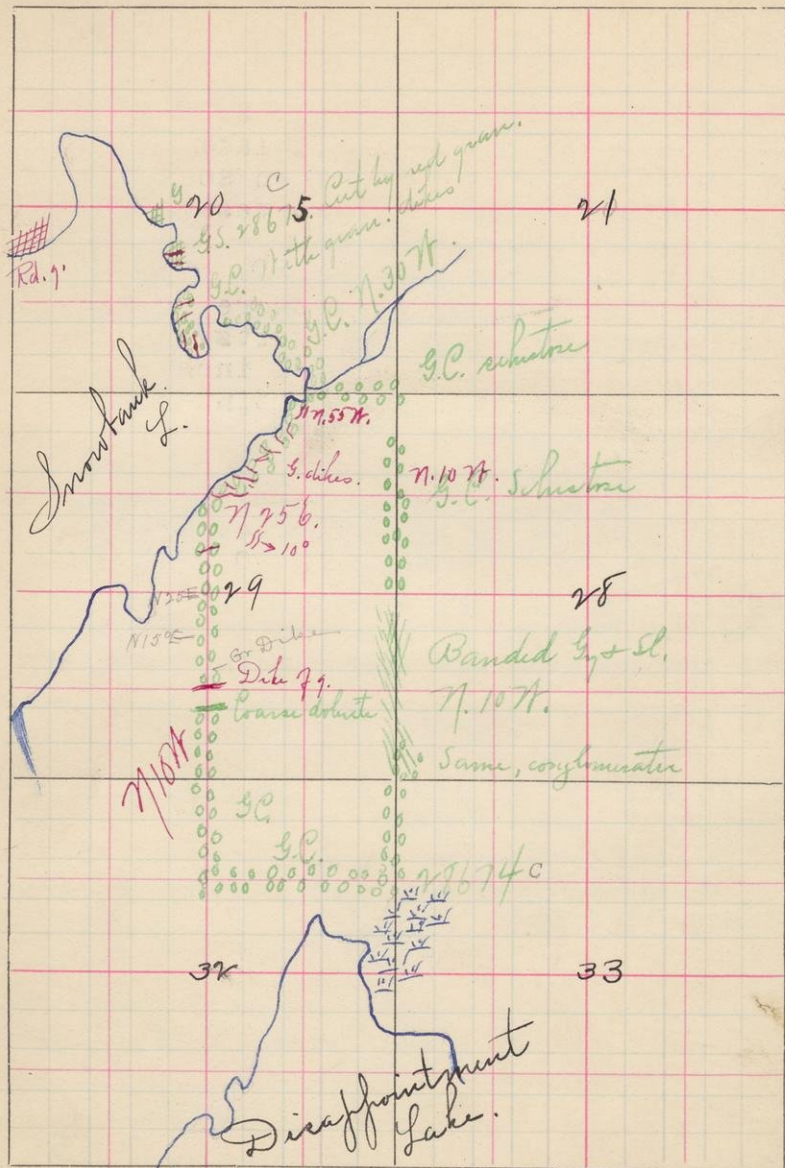 20
C
21
G
G.S. 28675. Cut by red gran.
G.C. With gran. dikes
G.C. N. 30 W.
Rd. g.
G.C. schistose
N. 55 W.
Snowbank
L.
G. dikes.
N. 10 W.
G.C. Schistose
N 25 E.
10°
N25E
29
28
N15°E
Gr Dike
Dike of g.
Coarse dolerite
Banded Gy & Sl.
N. 10 W.
N10W
Same, conglomeratic
G.C.
G.C.
28674 C
32
33
Disappointment
Lake.